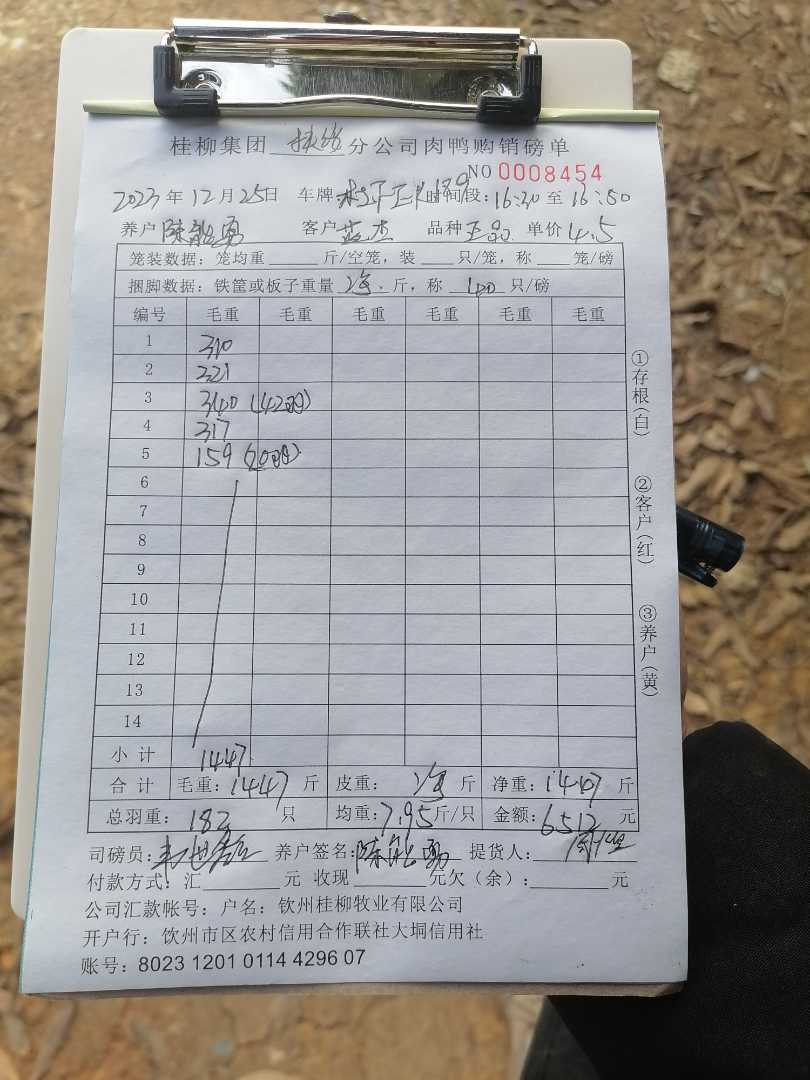 桂柳集团 分公司肉鸭购销磅单
NO 0008454
2023年12月25日 车牌 时间段:16:30至16:50
养户 陈能勇 客户 蓝杰 品种 正品 单价 4.5
笼装数据:笼均重 斤/空笼,装 只/笼,称 笼/磅
捆脚数据:铁筐或板子重量 净 斤,称 40 只/磅
编号 毛重 毛重 毛重 毛重 毛重 毛重
1 310
2 321
3 340 (42羽)
4 317
5 159 (20羽)
6
7
8
9
10
11
12
13
14
小计 1447
合计 毛重:1447斤 皮重: 净 斤 净重:1447斤
总羽重: 182 只 均重:7.95斤/只 金额:6512元
司磅员: 养户签名:陈能勇 提货人:
付款方式:汇 元 收现 元欠(余): 元
公司汇款帐号:户名:钦州桂柳牧业有限公司
开户行:饮州市区农村信用合作联社大垌信用社
账号:8023 1201 0114 4296 07
①存根(白)
②客户(红)
③养户(黄)